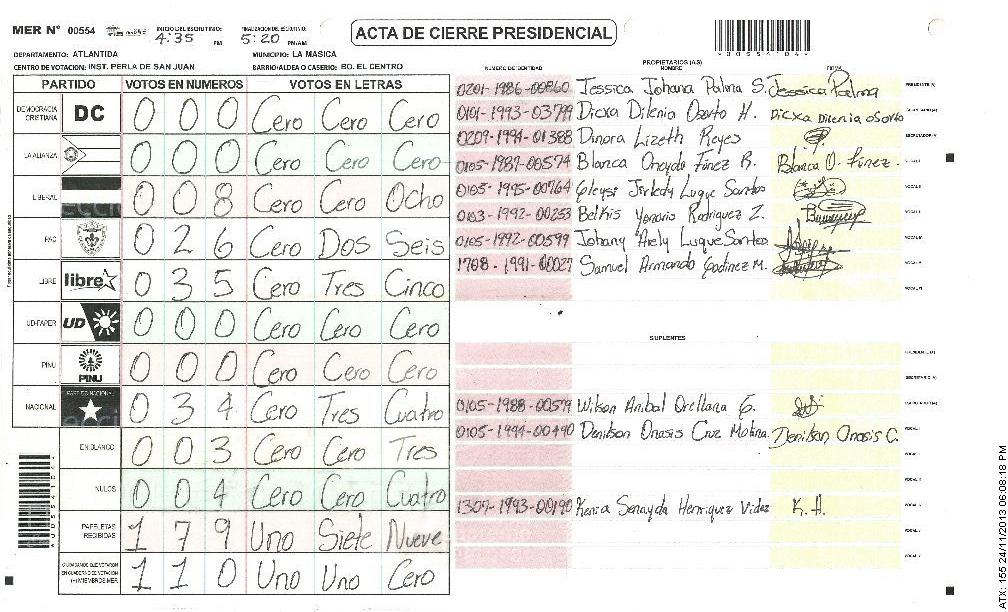 MER Nº 00554
INICIO DEL ESCRUTINIO: 4:35 PM
FINALIZACION DEL ESCRUTINIO: 5:20 PM/AM
ACTA DE CIERRE PRESIDENCIAL
00554104
DEPARTAMENTO: ATLANTIDA
MUNICIPIO: LA MASICA
CENTRO DE VOTACION: INST. PERLA DE SAN JUAN
BARRIO/ALDEA O CASERIO: BO. EL CENTRO
PARTIDO VOTOS EN NUMEROS VOTOS EN LETRAS
DEMOCRACIA CRISTIANA DC 0 0 0 Cero Cero Cero
LA ALIANZA 0 0 0 Cero Cero Cero
LIBERAL 0 0 8 Cero Cero Ocho
PAC 0 2 6 Cero Dos Seis
LIBRE libre 0 3 5 Cero Tres Cinco
UD-FAPER UD 0 0 0 Cero Cero Cero
PINU PINU 0 0 0 Cero Cero Cero
NACIONAL 0 3 4 Cero Tres Cuatro
EN BLANCO 0 0 3 Cero Cero Tres
NULOS 0 0 4 Cero Cero Cuatro
PAPELETAS RECIBIDAS 1 7 9 Uno Siete Nueve
CIUDADANOS QUE VOTARON EN CUADERNO DE VOTACION (+) MIEMBROS MER 1 1 0 Uno Uno Cero
NUMERO DE IDENTIDAD PROPIETARIOS (A,S) NOMBRE FIRMA
0201-1986-00860 Jessica Johana Palma S. Jessica Palma PRESIDENTE (A)
0101-1993-03799 Dicxa Dilenia Osorto H. Dicxa Dilenia Osorto SECRETARIO (A)
0209-1994-01388 Dinora Lizeth Reyes
0105-1987-00574 Blanca Oneyda Fúnez R. Blanca O. Fúnez.
0105-1995-00764 Gleysi Luque Santos
0103-1992-00253 Belkis Yonaris Rodriguez Z.
0105-1992-00599 Johany Arely Luque Santos
1708-1991-00027 Samuel Armando Godinez M.
SUPLENTES
0105-1988-00579 Wilson Anibal Orellana G.
0105-1994-00490 Denilson Onasis Cruz Molina Denilson Onasis C.
1309-1993-00190 Kenia Senayda Henriquez Videz K.H.
ATX: 155 24/11/2013 06:08:18 PM